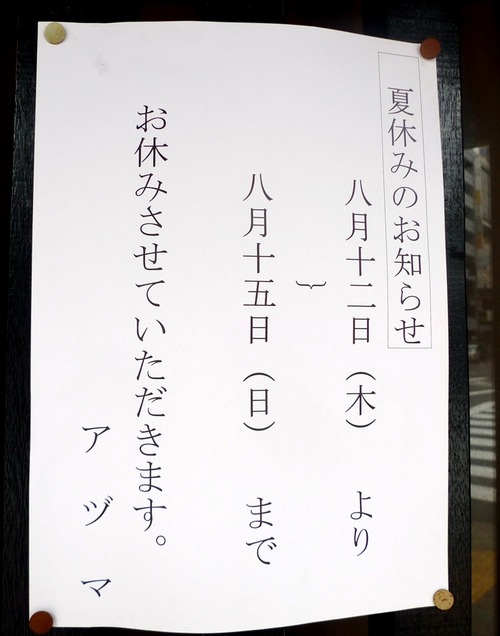 夏休みのお知らせ
八月十二日(木) より
~
八月十五日(日) まで
お休みさせていただきます。
アヅマ